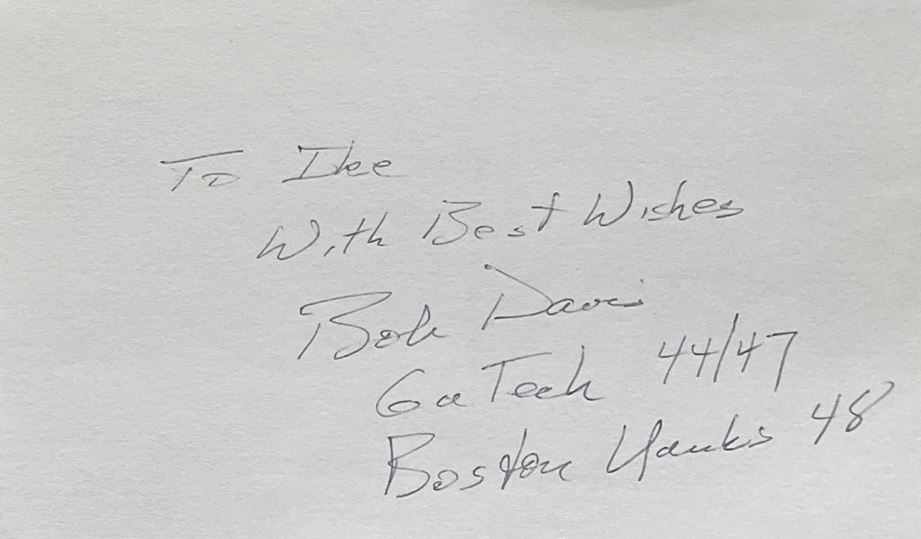 To Ike
With Best Wishes
Bob Davis
Ga Tech 44/47
Boston Yanks 48